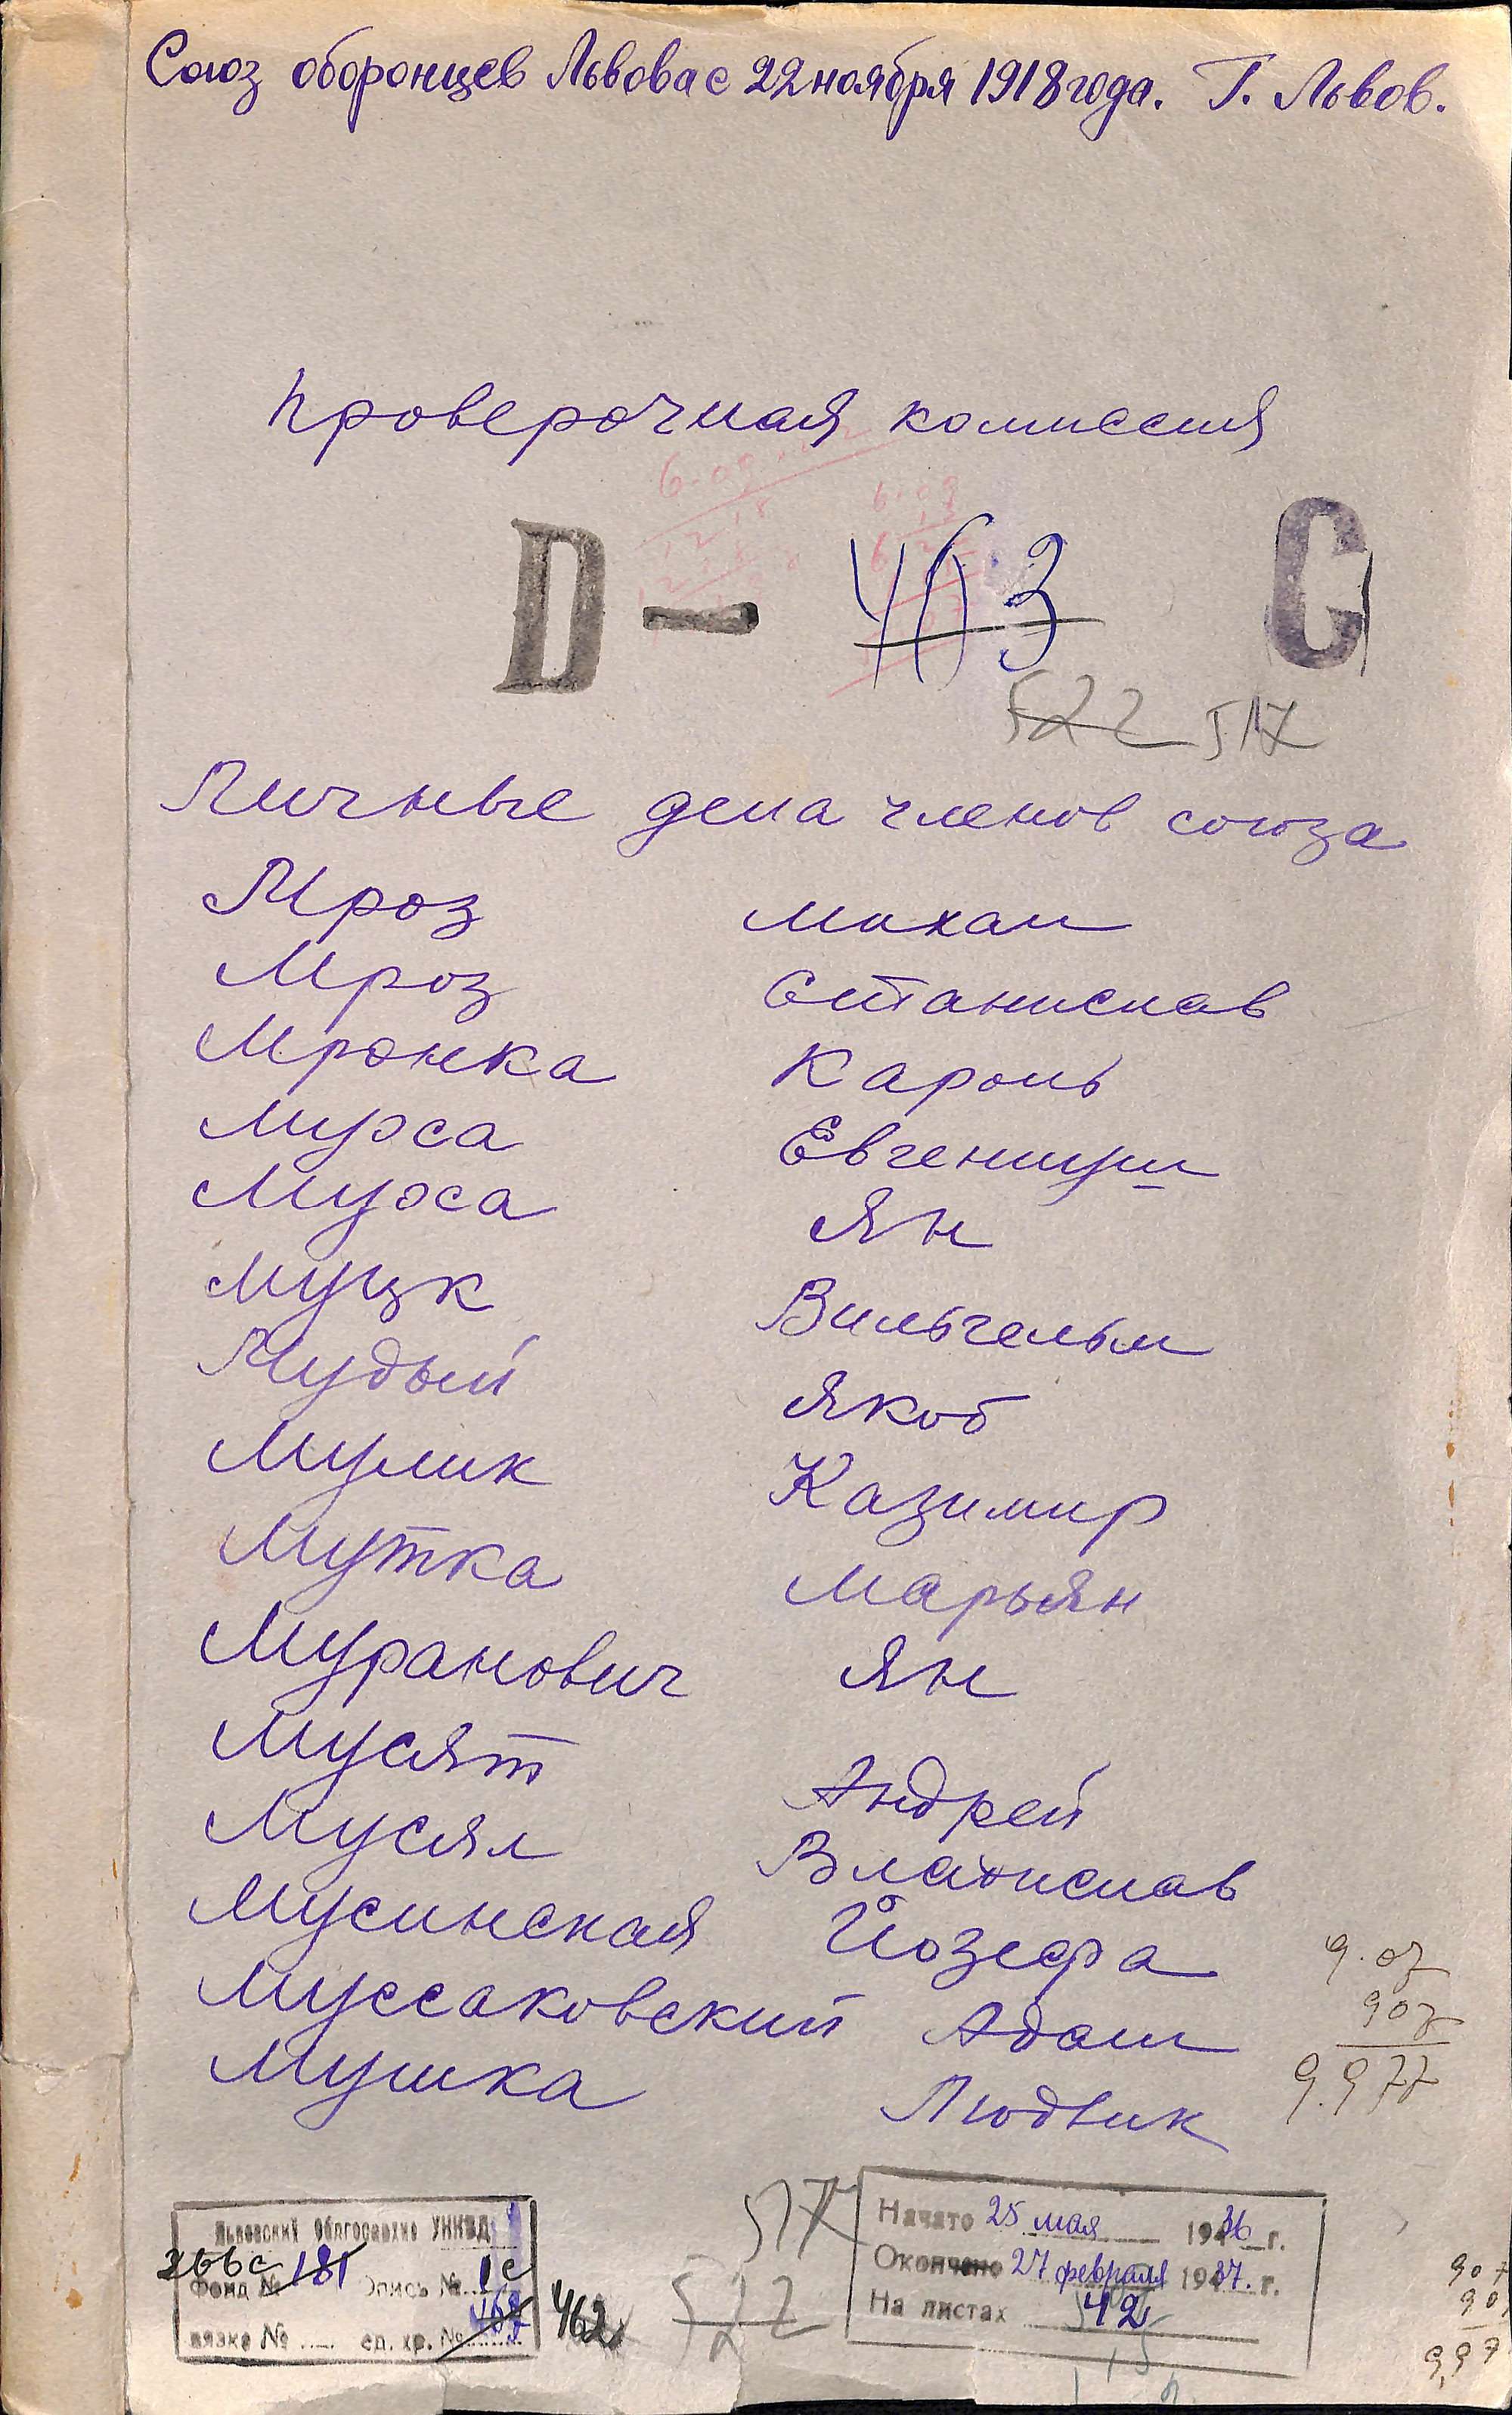 Союз оборонцев Львова с 22 ноября 1918 года. Г. Львов.
проверочная комиссия
D — 463 С
522 517
Личные дела членов союза
Мроз Михал
Мроз Станислав
Мронка Кароль
Мурса Евгениуш
Муха Ян
Муцк Вильгельм
Мудый Якоб
Мулик Казимир
Мутка Марьян
Муранович Ян
Мусят Андрей
Мусял Владислав
Мусинская Йозефа
Муссаковский Адам
Мушка Людвик
9.07
907
9.977
517
522
Львовский Облгосархив УНКВД
266с
Фонд № 181 Опись № 1с
вязка № ед. хр. № 467 462
Начато 25 мая 1936 г.
Окончено 27 февраля 1937 г.
На листах 42
907